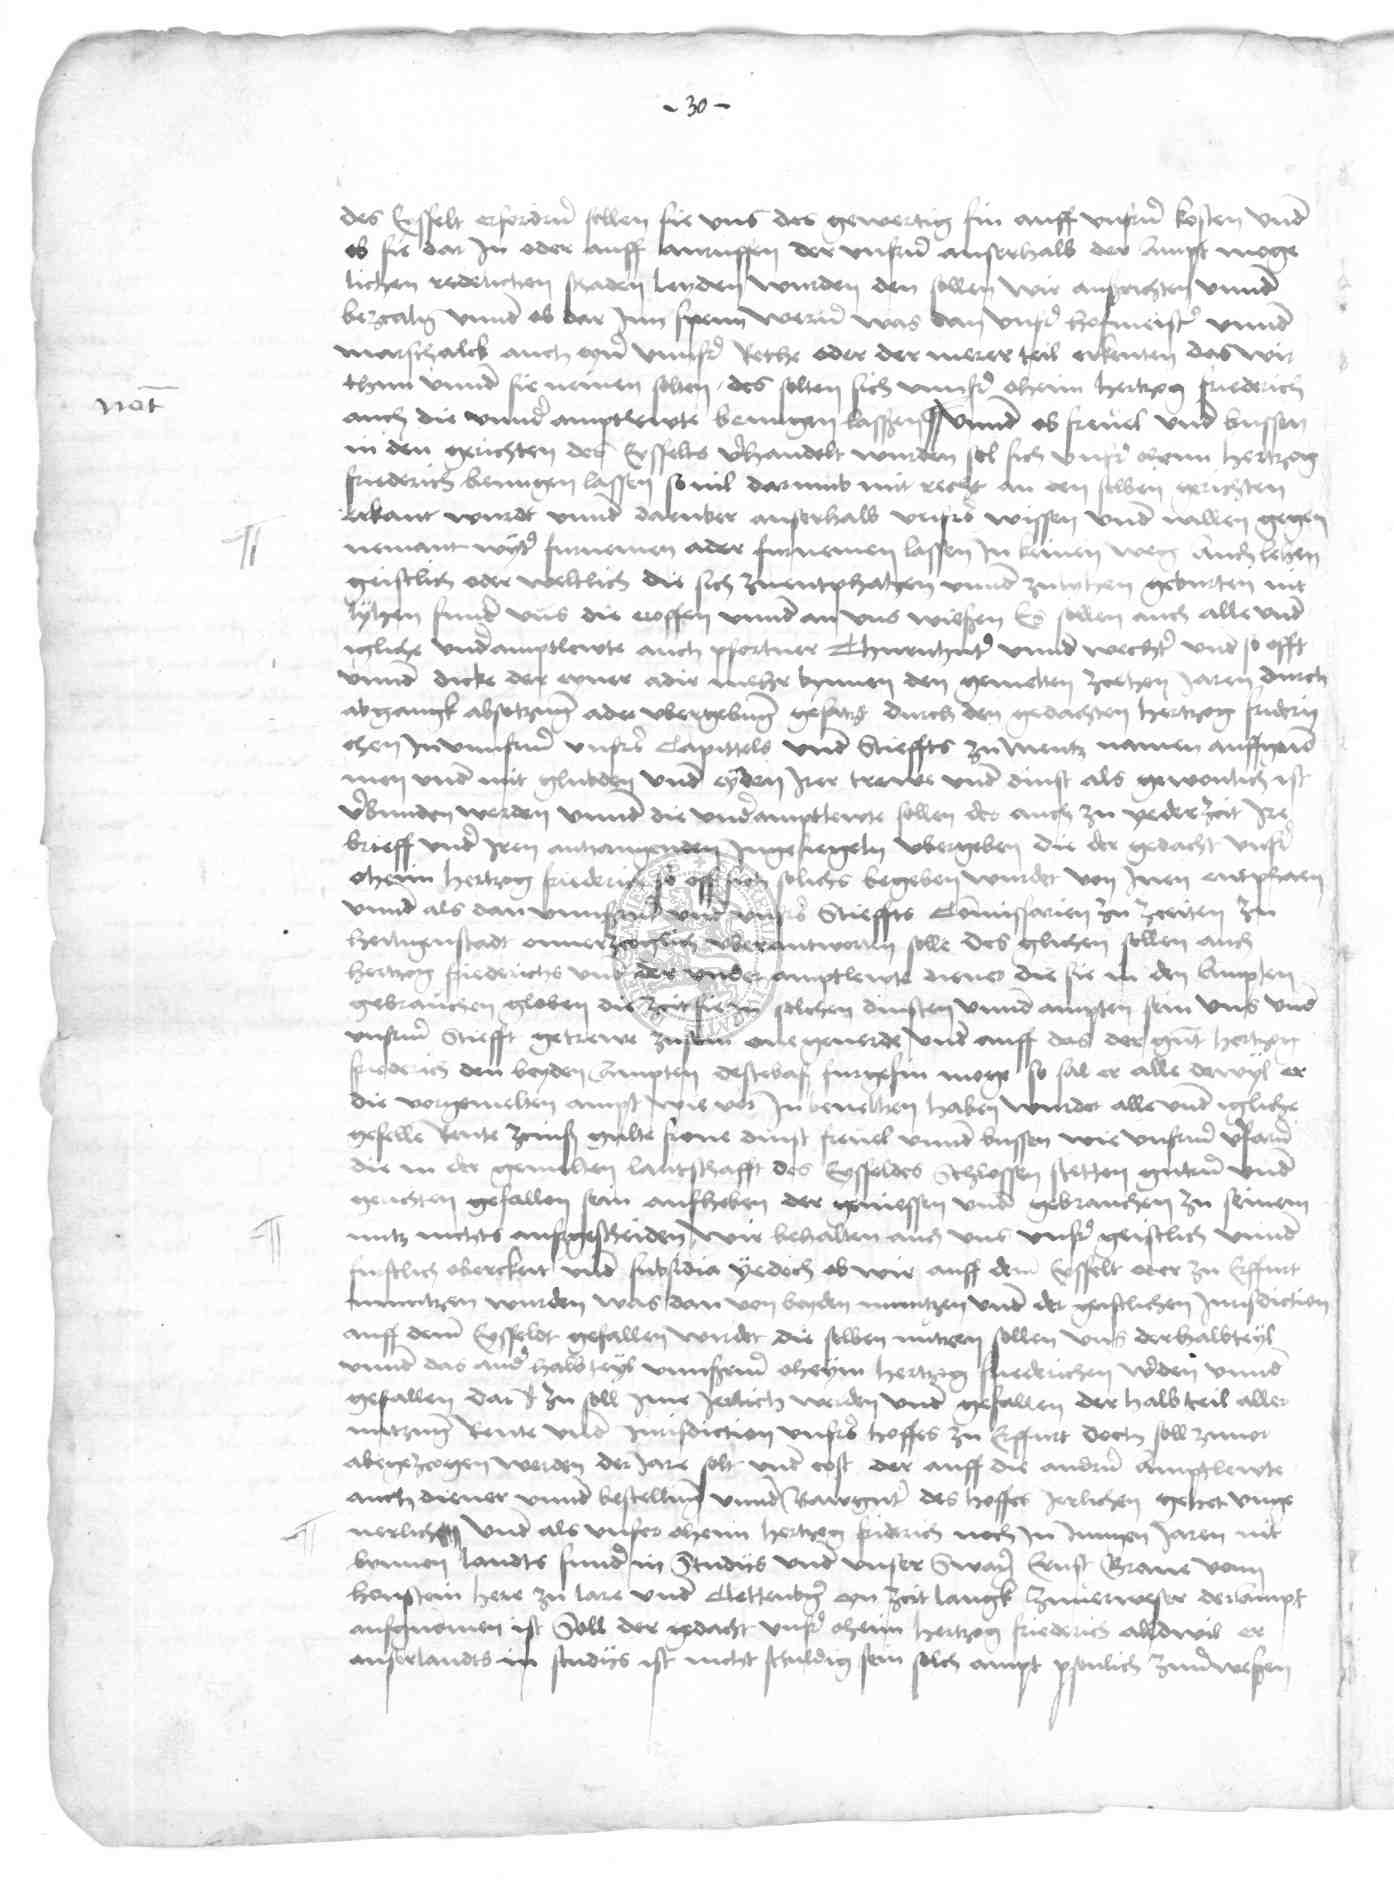 - 30 -
des Eysfelt erfordern sollen sie uns des gewertig sin auff unsern kosten und
ob sie dar In oder auff anruffen der unsern ausserhalb der Ampt moge
lichen redelichen schaden leyden wurden den sollen wir ausrichten unnd
bezcaln unnd ob dar Inn spenn wern was dan unser hofmeister unnd
marschalck auch eyner unnser Rethe oder der merer teil erkenten das wir
thun unnd sie nemen solten des solten sich unnser oheim hertzog friederich
Not
auch die unnder amptlewte benugen lassen unnd ob frevel und bussen
in den gerichten des Eysfelts verhandelt wurden sol sich unser oheim hertzog
friederich benugen lassen so vil darumb mit recht an den selben gerichten
erkant wurdt unnd daruber ausserhalb unsers wissen und willen gegen
nemant wyter furnemen ader furnemen lassen In keinen weg Auch lehen
geistlich oder weltlich die sich zuentphahen unnd zulihen geburten nit
lyhen sunder uns die offen unnd an uns wiesen Es sollen auch alle und
igliche underamptlewte auch pfortner Thurnhuter unnd wechter und so offt
unnd dicke der eyner adir mehr bynnen den gemelten zcehen Jaren durch
abgangk absetzung ader ubergebung gesatzt durch den gedachten hertzog frideri
chen In unnserm unsers Capittels und Stieffts zu Mentz namen auffgenom
men und mit glubden und eyden Irer trewe und dinst als gewonlich ist
verbunden werden unnd die underamptlewte sollen des auch zu yeder zeit Ire
brieff under Iren anhangenden Ingesiegeln ubergeben die der gedacht unser
oheim hertzog friederich so offt sich solichs begeben wurdet von Inen entphaen
unnd als dan unnserm und unsers Stieffts Commissarien zu zceiten zu
heiligenstadt onverzcoglich uberantworten solle Des glichen sollen auch
hertzog friederichs und der under amptlewte diener die sie in den Ampten
gebrauchen globen die zeit sie in solchen dinsten unnd ampten sein uns und
unserm Stiefft getrewe zusein one geverde Und auff das der gnt hertzog
friederich den beyden Ampten destebaß furgesin moge so sal er alle dewyl er
die vorgemelten ampt wie vor In bevelhen haben wurdet alle und igliche
gefelle Rente zcinß gulte frone dinst frevel unnd bussen wie unserm vorfarn
die in der gemelten lantschafft des Eysfeldes Schlossen stetten gutern und
gerichten gefallen sein aufheben der geniessen und gebrauchen zu seinem
nutz nichts ausgescheiden Wir behalten auch uns unser geistlich unnd
furstlich oberckeit und subsidia yedoch ob wir auff dem Eysfelt oder zu Erffurt
muntzen wurden was dan von beyden muntzen und der geistlichen Jurisdiction
auff dem Eysfeldt gefallen wurdet die selben nutzen sollen uns der halbteyl
unnd das ander halbteyl unnserm oheym hertzog friederichen werden unnd
gefallen dar zu soll Ime Jerlich werden und gefallen der halb teil aller
nutzung Rente und Jurisdiction unsers hoffes zu Erffurt doch soll zuvor
abegezcogen werden der Jare solt und cost der auff die andern amptlewte
auch diener unnd bestellung unnd des hoffes Jerlichen gehet unge
verlichen Und als unser oheim hertzog friderich noch In Jungen Jaren nit
bynnen landts sunder in Studiis und unser Swager Ernst Grave vonn
honstein here zu lare und Clettenberg eyn zeit langk zuverweser der Ampt
aufgnomen ist Soll der gedacht unser oheim hertzog friederich alldwil er
auserlandts in studiis ist nicht schuldig sein solch ampt personlich zuverwesen